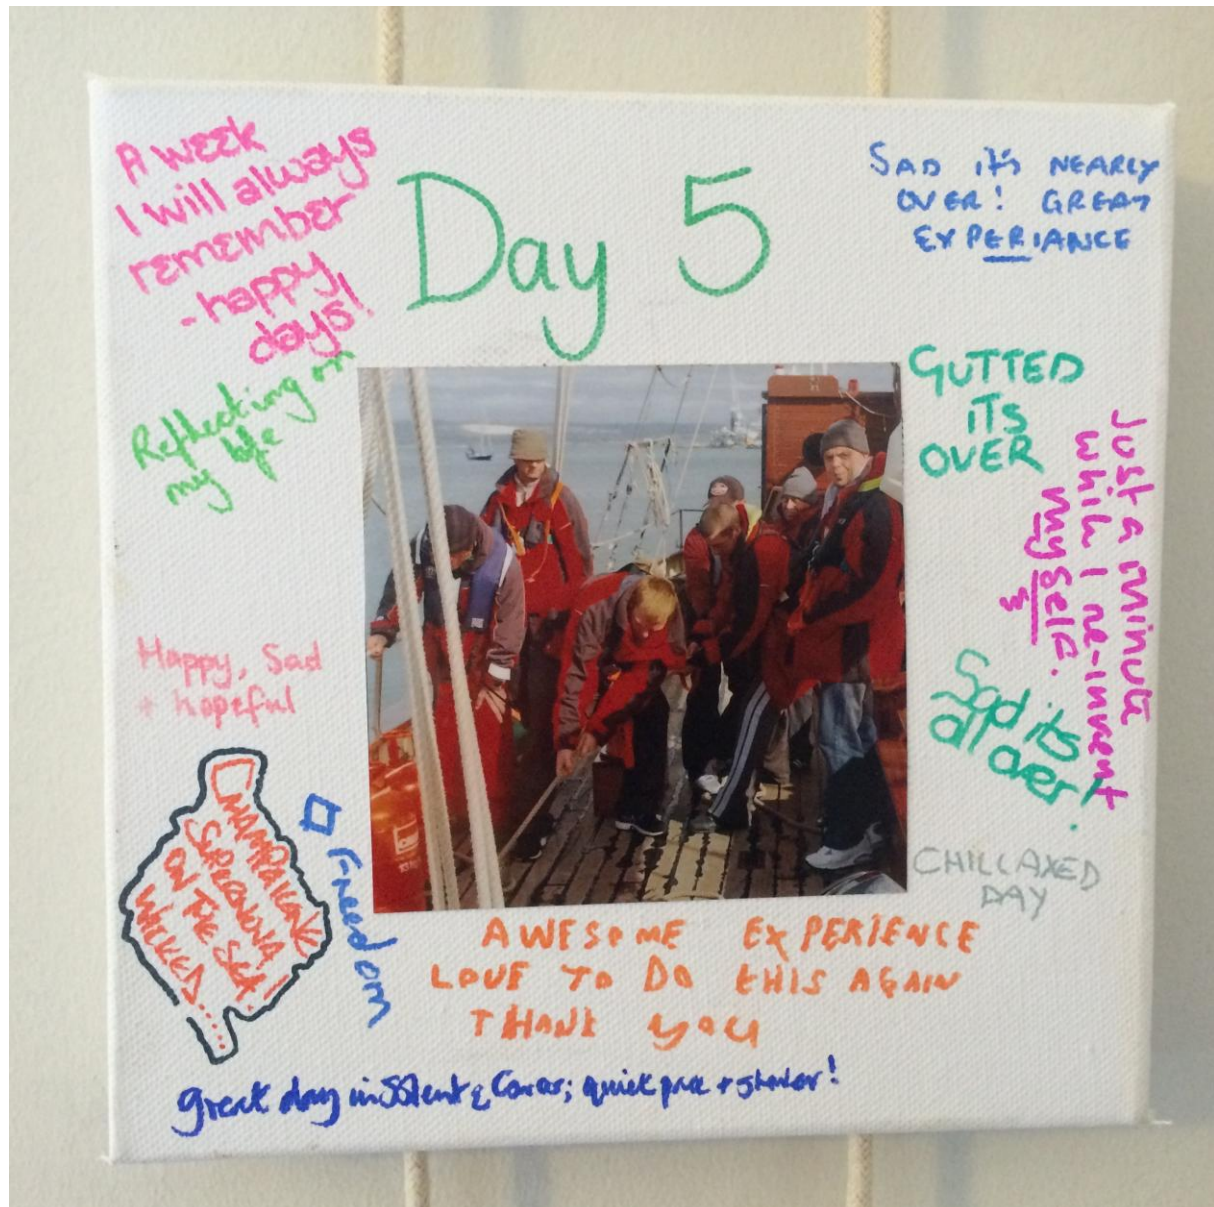 Day 5
A week
I will always
remember
- happy
days!
SAD it's NEARLY
OVER! GREAT
EXPERIANCE
Reflecting on
my life
GUTTED
iTS
OVER
Just a minute
while I re-invent
myself.
Happy, Sad
+ hopeful
Sad its
all over.
ON THE SEA!
WICKED....
Freedom
CHILLAXED
DAY
AWESOME EXPERIENCE
LOVE TO DO THIS AGAIN
THANK you
great day in Solent & Cowes; quick + shower!